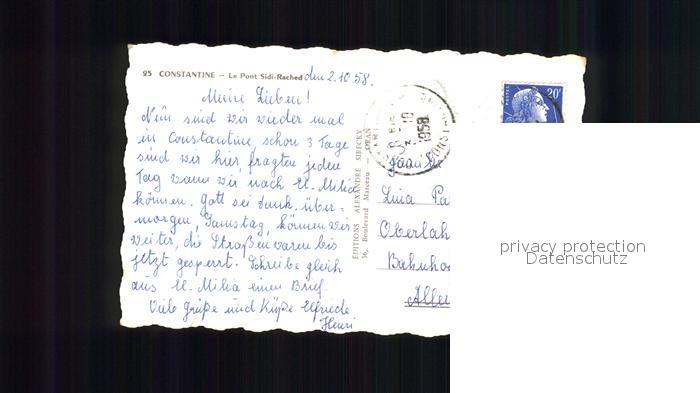 25 CONSTANTINE – Le Pont Sidi-Rached
den 2.10.58.
Meine Lieben!
Nun sind wir wieder mal
in Constantine, schon 3 Tage
sind wir hier, fragten jeden
Tag wann wir nach El-Milia
können. Gott sei Dank, über-
morgen, Samstag, können wir
weiter, die Straßen waren bis
jetzt gesperrt. Schreibe gleich
aus El-Milia einen Brief.
Viele Grüße und Küße Elfriede
Henri
ÉDITIONS ALEXANDRE SIRECKY
36, Boulevard Marceau – ORAN
POSTES
20F
1958
Luia Pa
Oberlah
Bahnho
Allei
privacy protection
Datenschutz